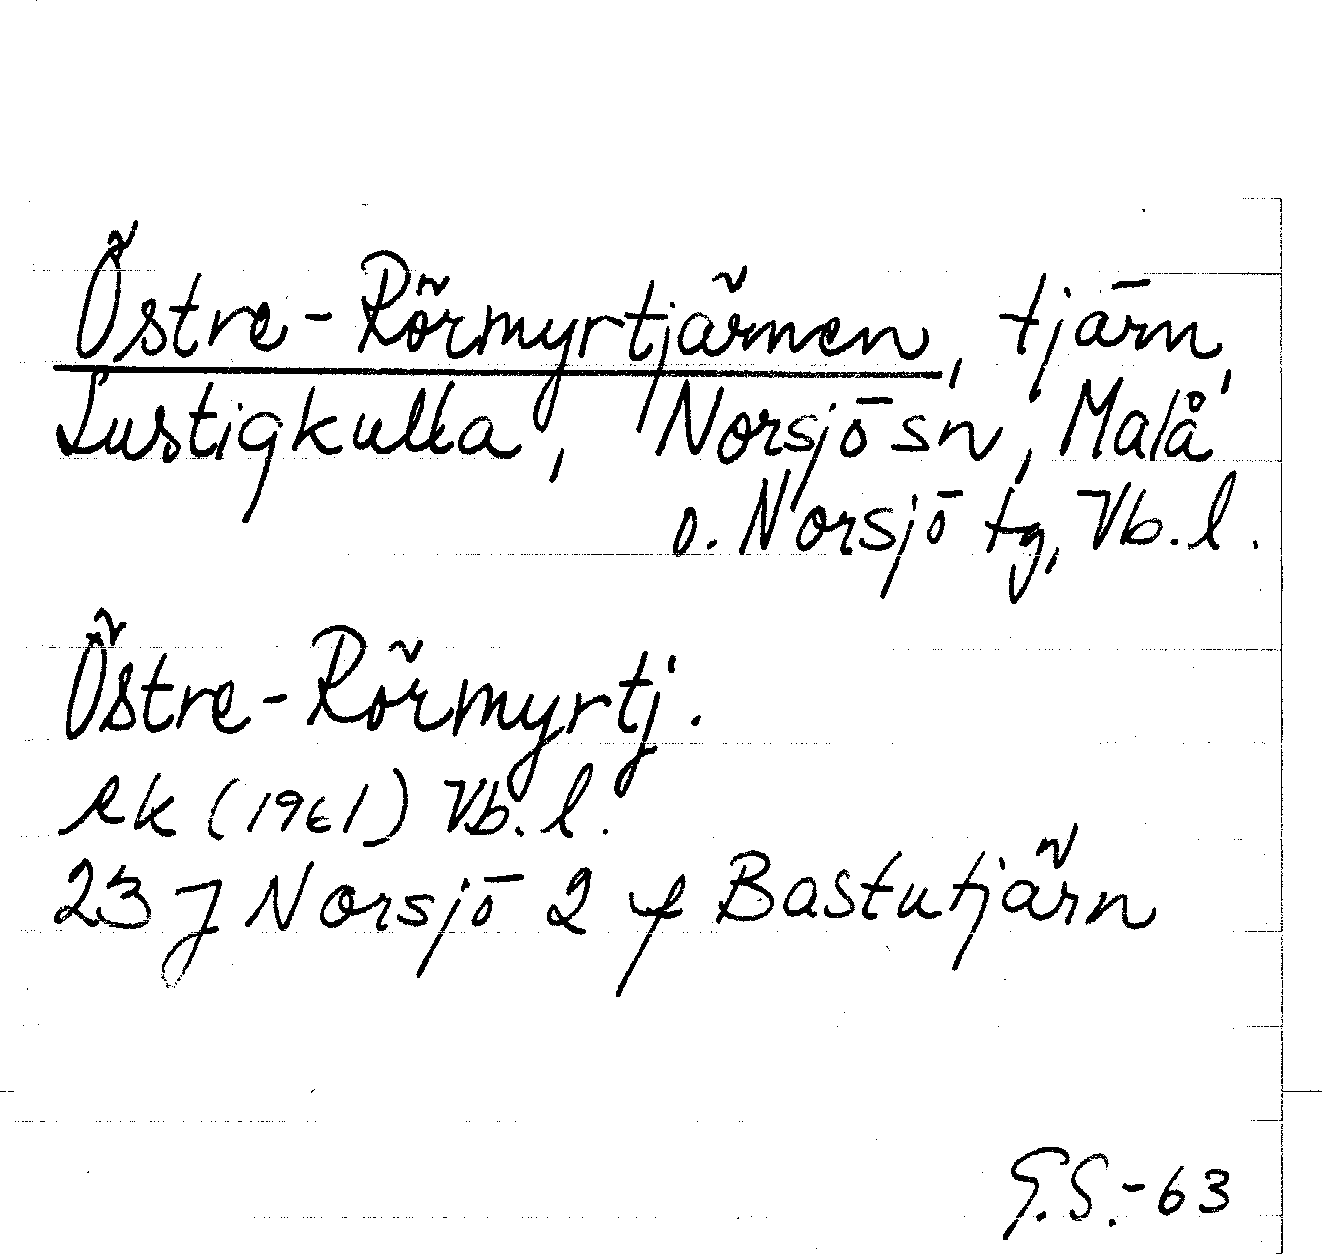 Östre-Rörmyrtjärnen, tjärn,
Lustigkulla, Norsjö sn, Malå
o. Norsjö tg, Vb. l.
Östre-Rörmyrtj.
ek (1961) Vb. l.
23 J Norsjö 2 f Bastutjärn
G.S.-63